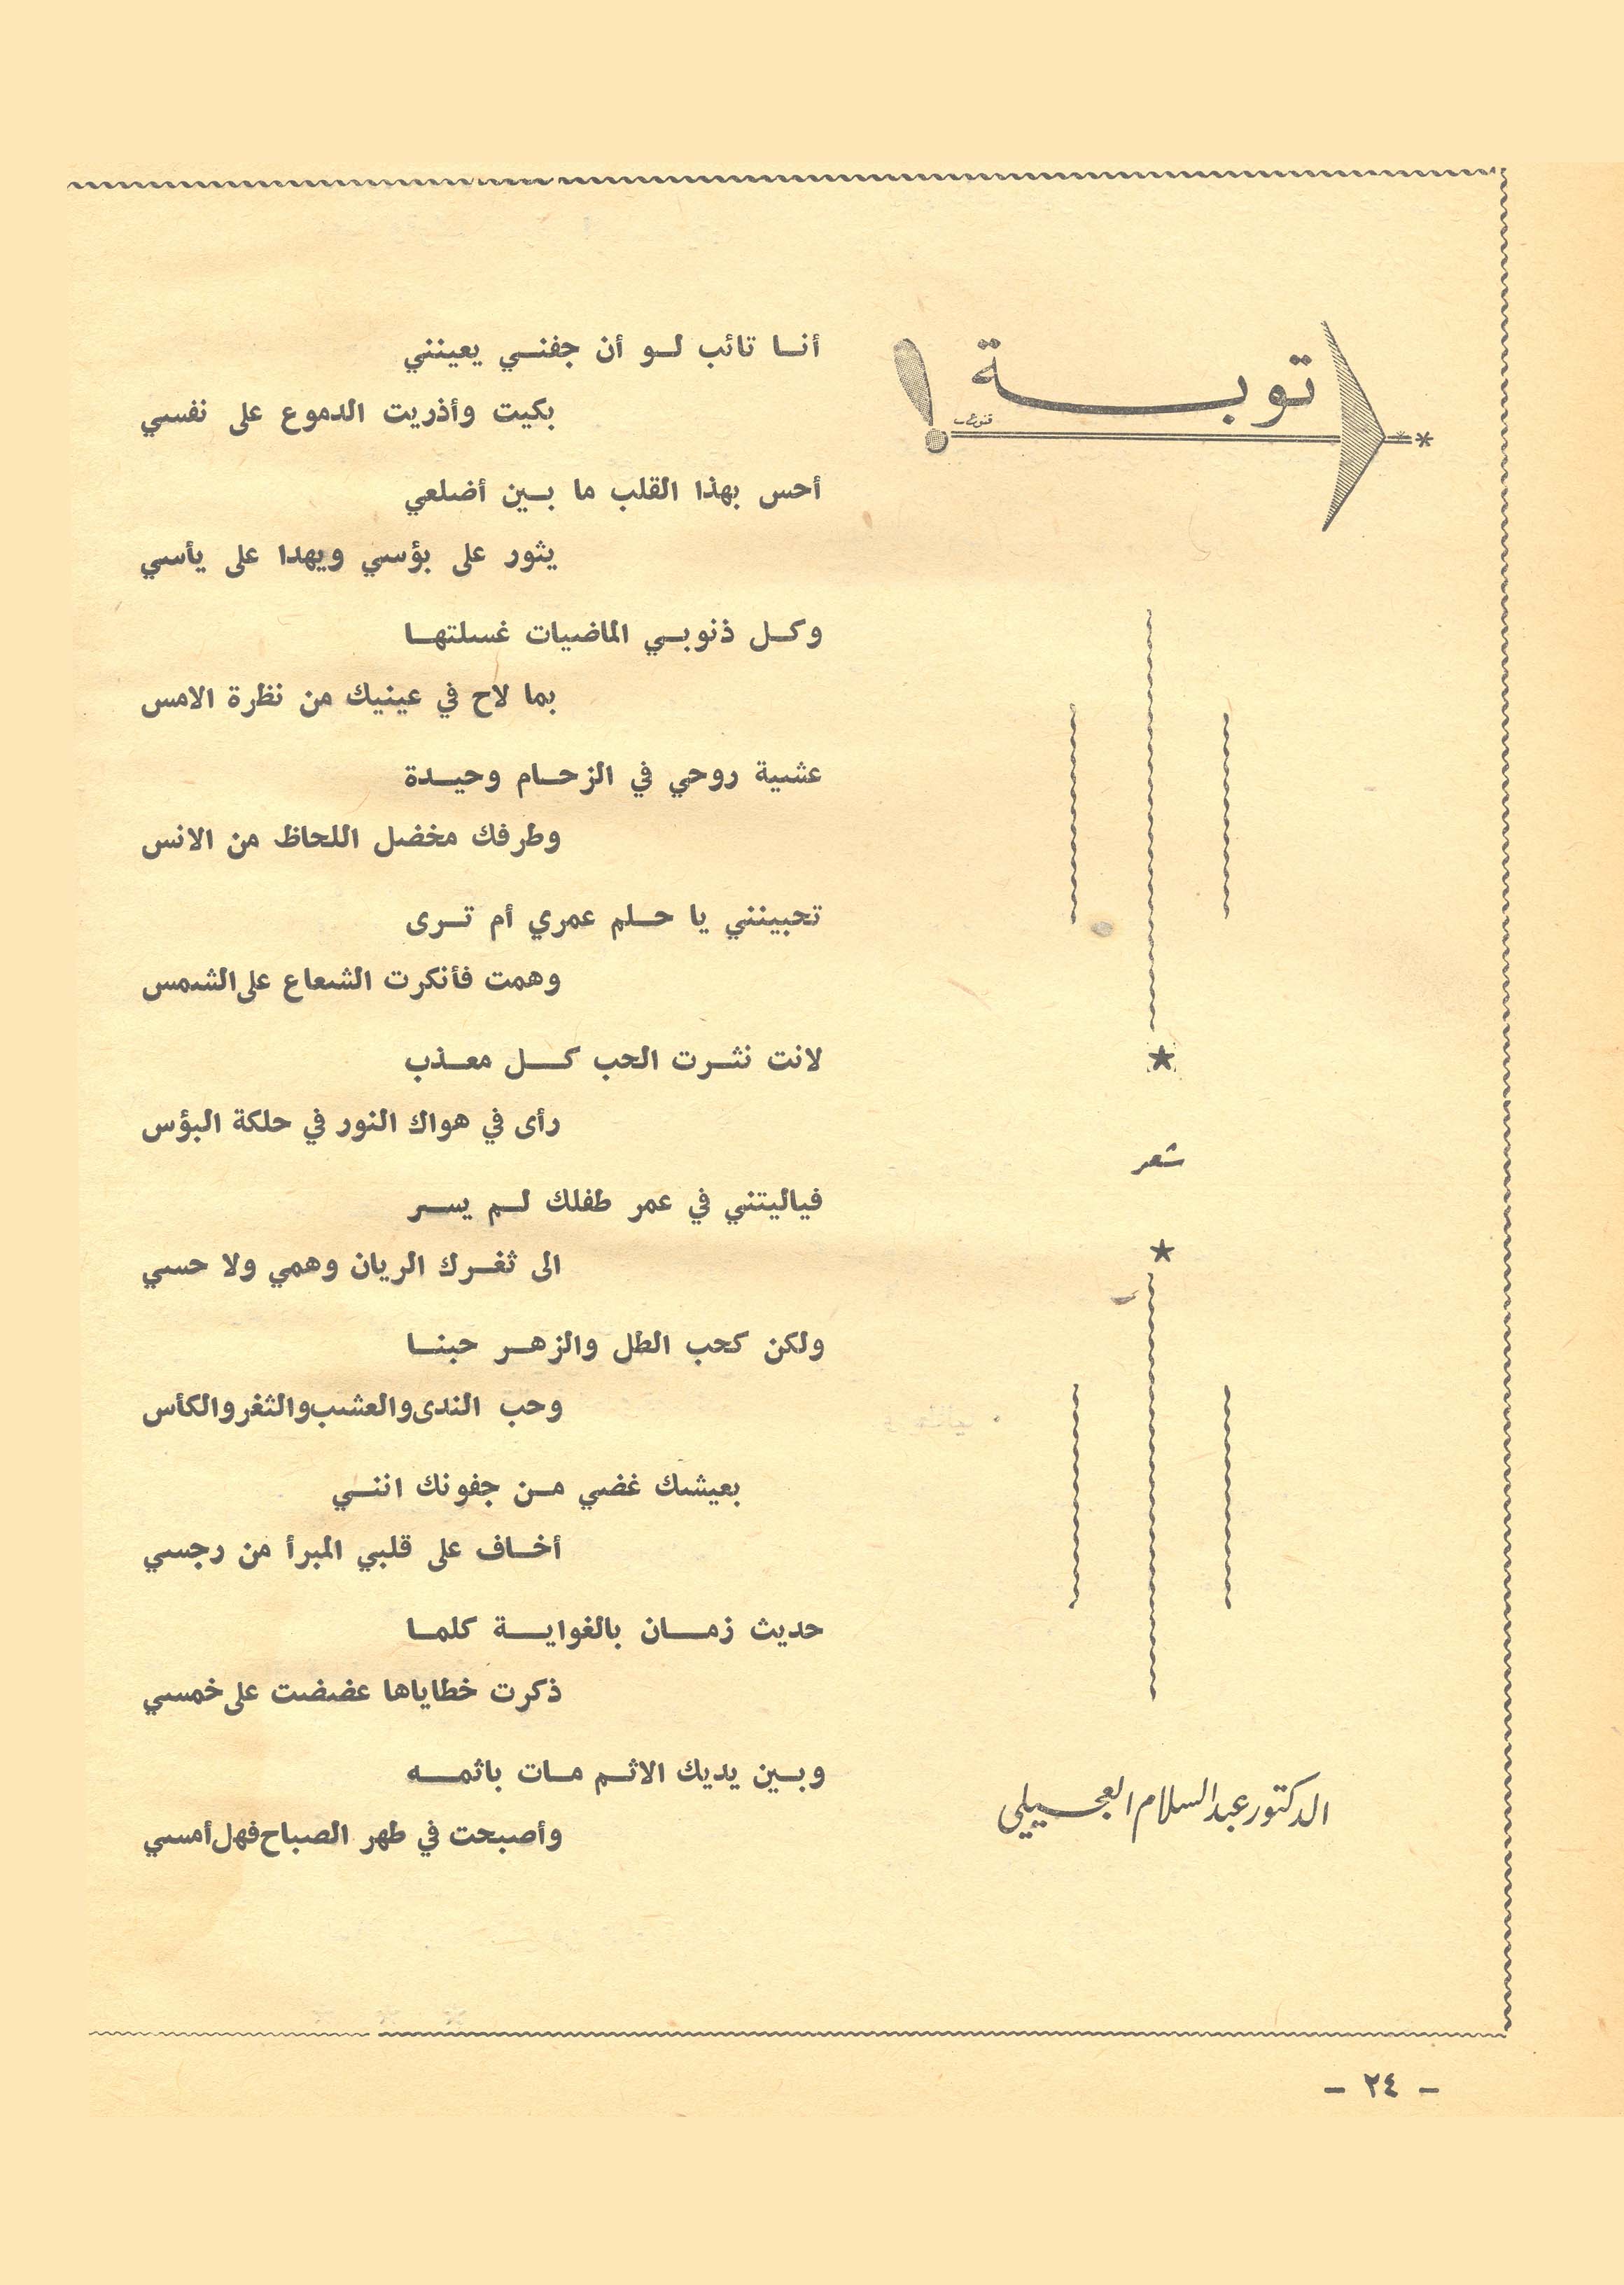 توبة !
شعر
الدكتور عبد السلام العجيلي
أنا تائب لو أن جفني يعينني
بكيت وأذريت الدموع على نفسي
أحس بهذا القلب ما بين أضلعي
يثور على بؤسي ويهدا على يأسي
وكل ذنوبي الماضيات غسلتها
بما لاح في عينيك من نظرة الامس
عشية روحي في الزحام وحيدة
وطرفك مخضل اللحاظ من الانس
تحبينني يا حلم عمري أم ترى
وهمت فأنكرت الشعاع على الشمس
لانت نثرت الحب كل معذب
رأى في هواك النور في حلكة البؤس
فياليتني في عمر طفلك لم يسر
الى ثغرك الريان وهمي ولا حسي
ولكن كحب الطل والزهر حبنا
وحب الندى والعشب والثغر والكأس
بعيشك غضي من جفونك انني
أخاف على قلبي المبرأ من رجسي
حديث زمان بالغواية كلما
ذكرت خطاياها عضضت على خمسي
وبين يديك الاثم مات باثمه
وأصبحت في طهر الصباح فهل أمسي
- ٢٤ -